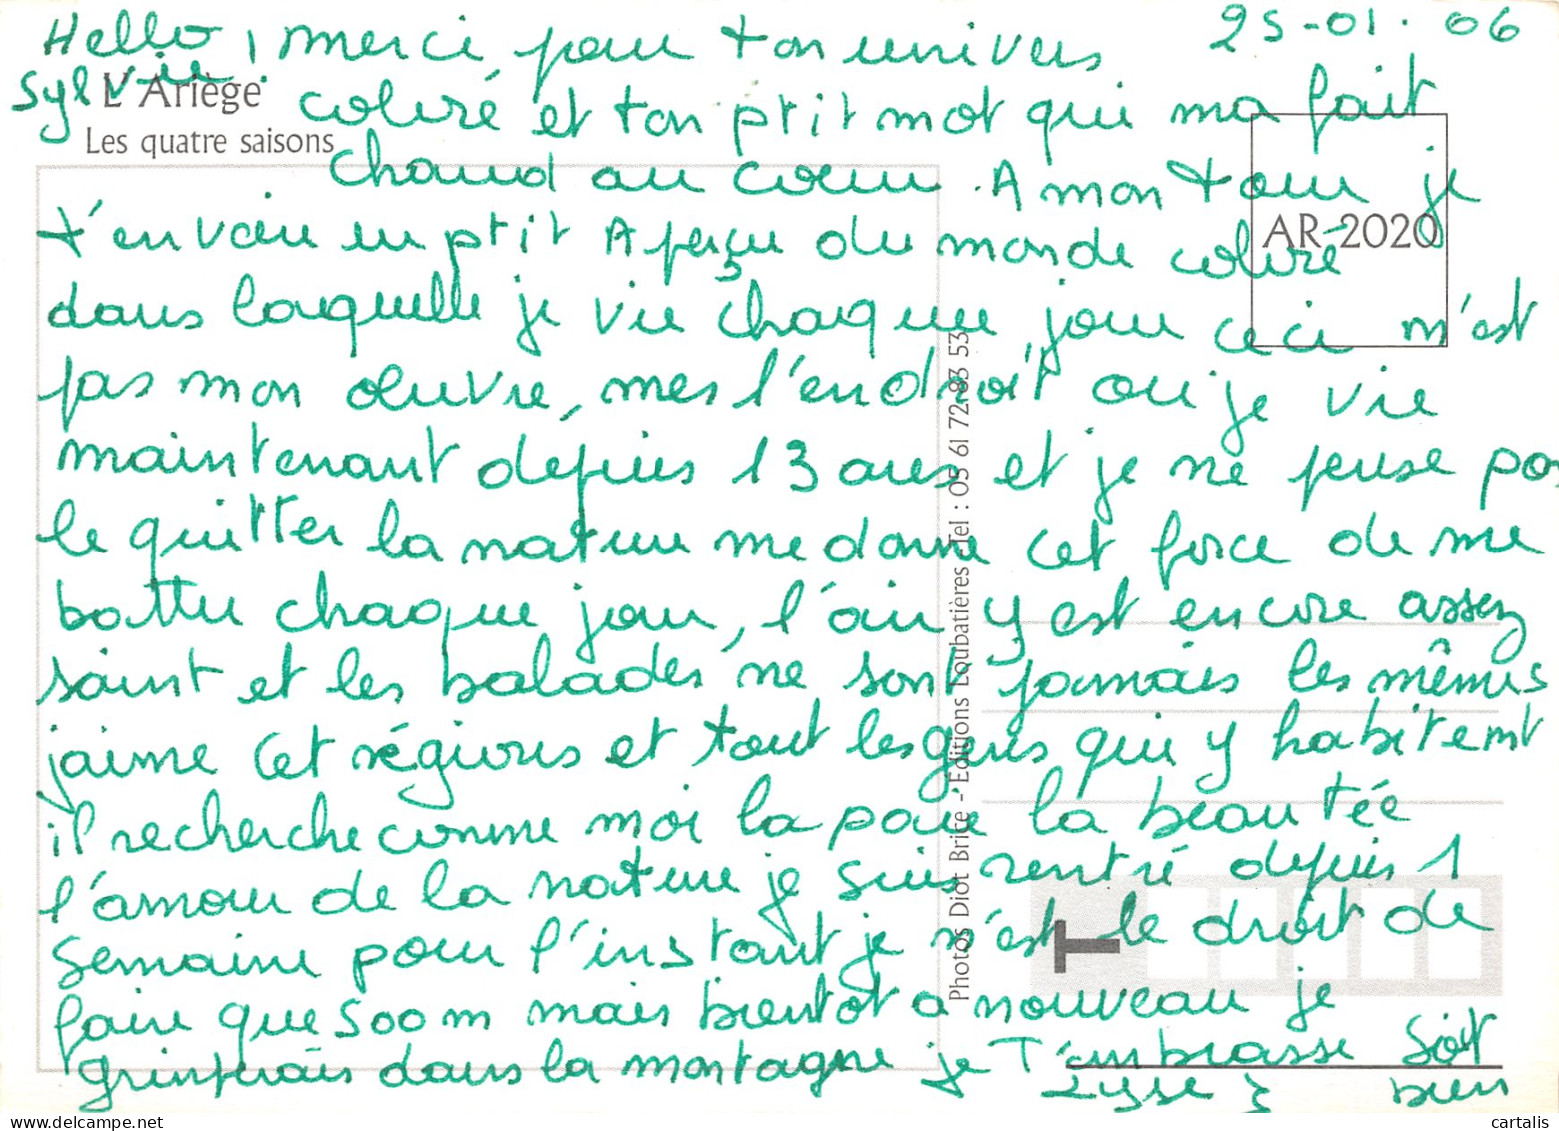 25-01.06
Hello, merci pour ton univers
Sylvie
L'Ariège
coloré et ton ptit mot qui ma fait
Les quatre saisons
chaud au coeur. A mon tour je
AR-2020
t'envoie un ptit Aperçu du monde coloré
dans laquelle je vie chaque jour ceci n'est
pas mon oeuvre, mes l'endroit ou je vie
maintenant dépuis 13 ans et je ne pense pas
le quitter la nature me donne cet force de me
battre chaque jour, l'air y est encore assez
saint et les balades ne sont jamais les mêmes
jaime cet régions et tout les gens qui y habitent
il recherche comme moi la paix la beautée
l'amour de la nature je suis rentré depuis 1
semaine pour l'instant je n'est le droit de
faire que 500m mais bientot a nouveau je
grimperais dans la montagne je T'embrasse Soit
bien
Photos Didot Brice - Editions Loubatières - Tel : 05 61 72 83 53
T